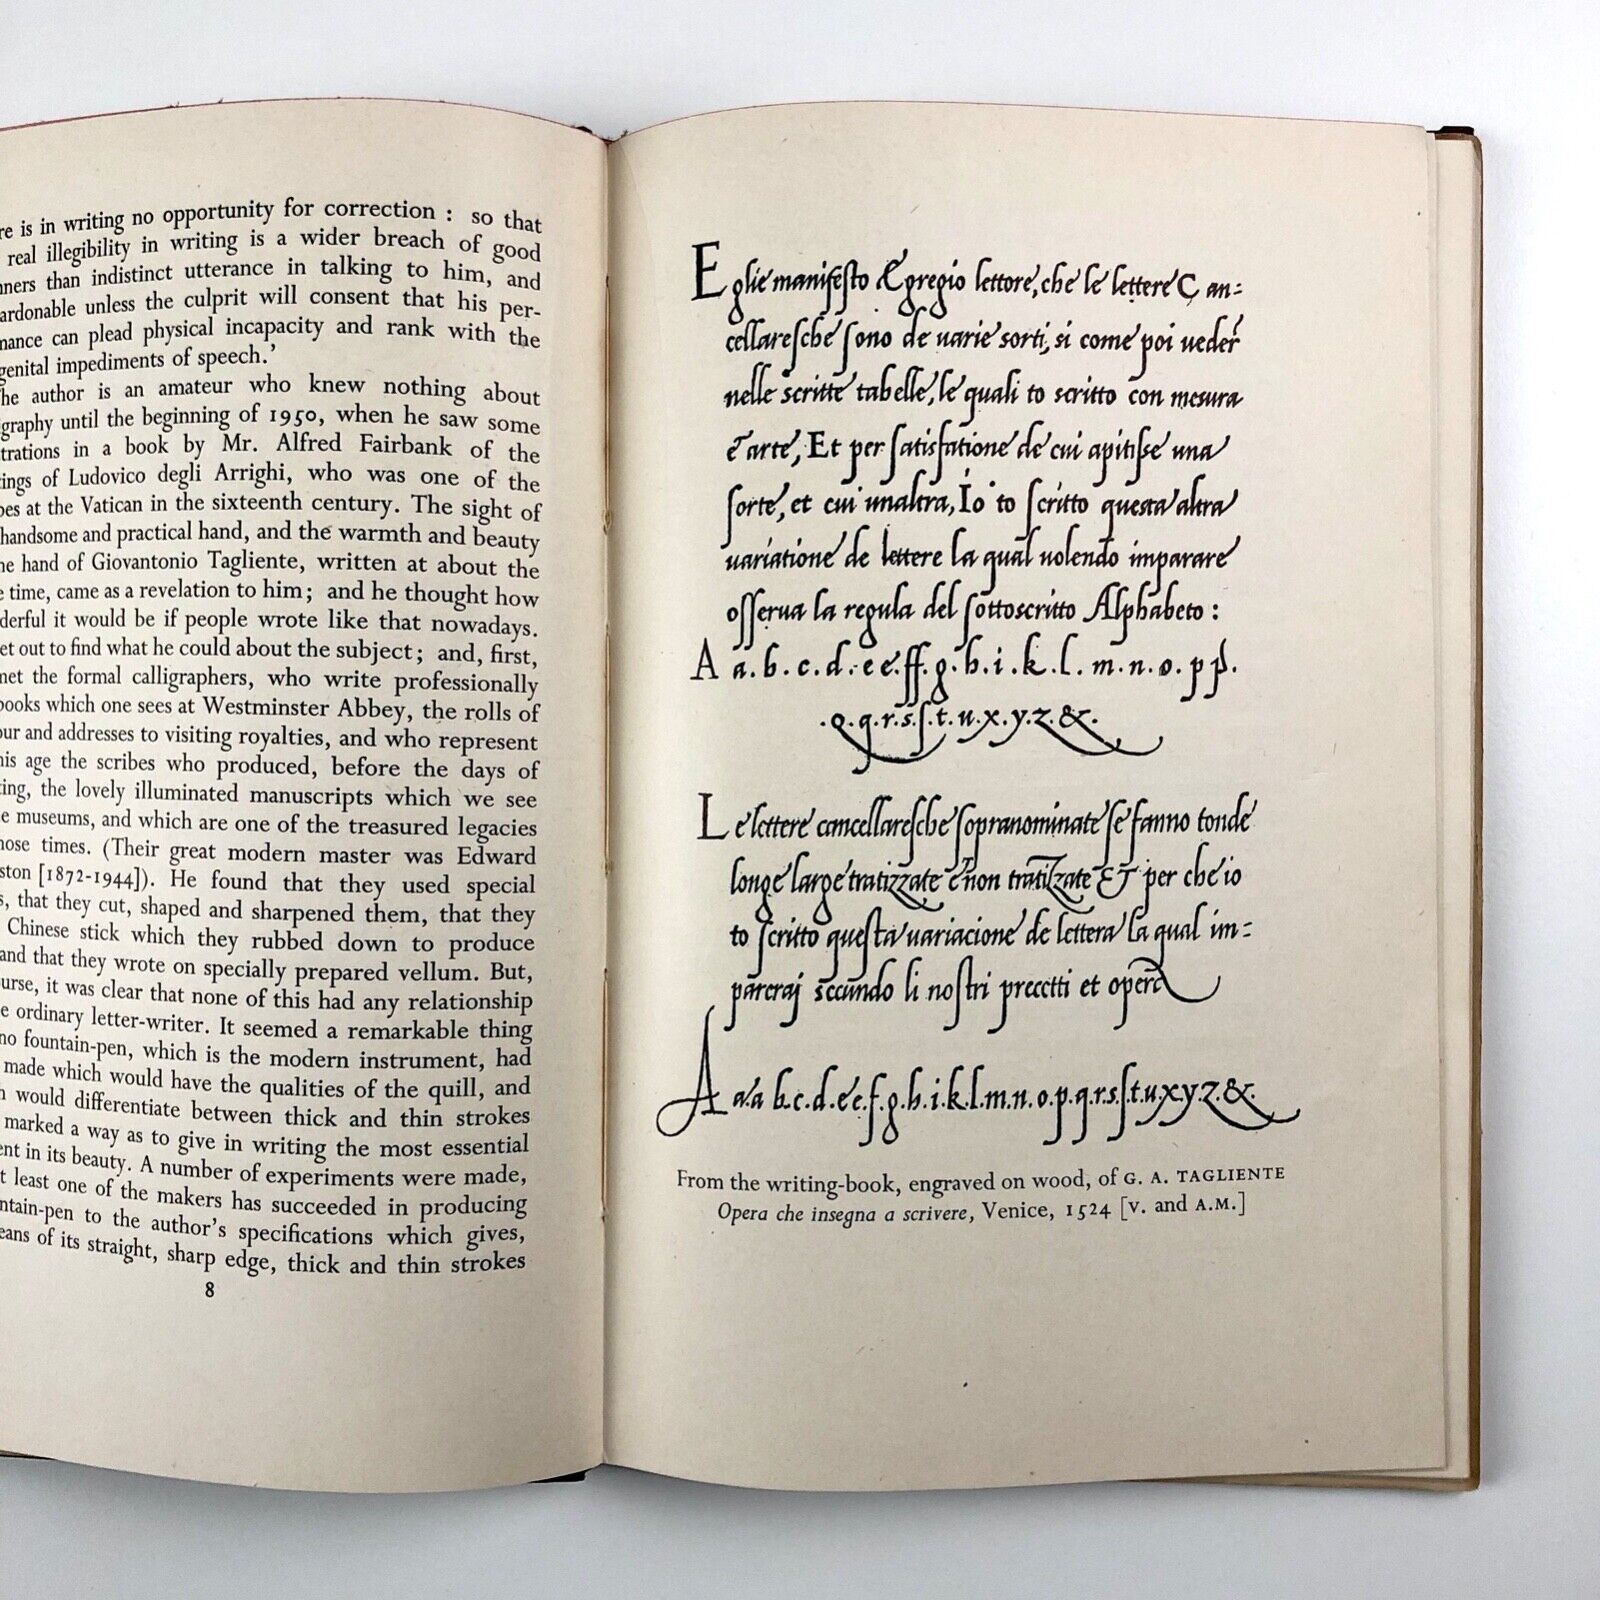 re is in writing no opportunity for correction : so that
real illegibility in writing is a wider breach of good
nners than indistinct utterance in talking to him, and
ardonable unless the culprit will consent that his per-
mance can plead physical incapacity and rank with the
genital impediments of speech.'
he author is an amateur who knew nothing about
graphy until the beginning of 1950, when he saw some
trations in a book by Mr. Alfred Fairbank of the
ings of Ludovico degli Arrighi, who was one of the
bes at the Vatican in the sixteenth century. The sight of
handsome and practical hand, and the warmth and beauty
he hand of Giovantonio Tagliente, written at about the
e time, came as a revelation to him; and he thought how
derful it would be if people wrote like that nowadays.
et out to find what he could about the subject; and, first,
met the formal calligraphers, who write professionally
books which one sees at Westminster Abbey, the rolls of
our and addresses to visiting royalties, and who represent
his age the scribes who produced, before the days of
ting, the lovely illuminated manuscripts which we see
e museums, and which are one of the treasured legacies
hose times. (Their great modern master was Edward
ston [1872-1944]). He found that they used special
s, that they cut, shaped and sharpened them, that they
Chinese stick which they rubbed down to produce
and that they wrote on specially prepared vellum. But,
urse, it was clear that none of this had any relationship
e ordinary letter-writer. It seemed a remarkable thing
no fountain-pen, which is the modern instrument, had
made which would have the qualities of the quill, and
h would differentiate between thick and thin strokes
marked a way as to give in writing the most essential
ent in its beauty. A number of experiments were made,
t least one of the makers has succeeded in producing
ntain-pen to the author's specifications which gives,
eans of its straight, sharp edge, thick and thin strokes
8
Eglie manifesto Egregio lettore, che le lettere Can=
cellaresche sono de varie sorti, si come poi veder
nelle scritte tabelle, le quali to scritto con mesura
e arte, Et per satisfatione de cui apitisse una
sorte, et cui unaltra, Io to scritto questa altra
uariatione de lettere la qual uolendo imparare
osserua la regula del sottoscritto Alphabeto :
A a.b.c.d.e e.ff.g.h.i.k.l.m.n.o.p p.
.q.q.r.s.ſ.t.u.x.y.z.&.
Le lettere cancellaresche sopranominate se fanno tonde
longe large tratizzate e non tratizzate Et per che io
to scritto questa uariacione de lettera la qual im=
parerai secundo li nostri precetti et opera
A a.a b.c.d.e e.f.g.h.i.k.l.m.n.o.p.q.r.s.ſ.t.u.x.y.z.&.
From the writing-book, engraved on wood, of G. A. TAGLIENTE
Opera che insegna a scrivere, Venice, 1524 [V. and A.M.]